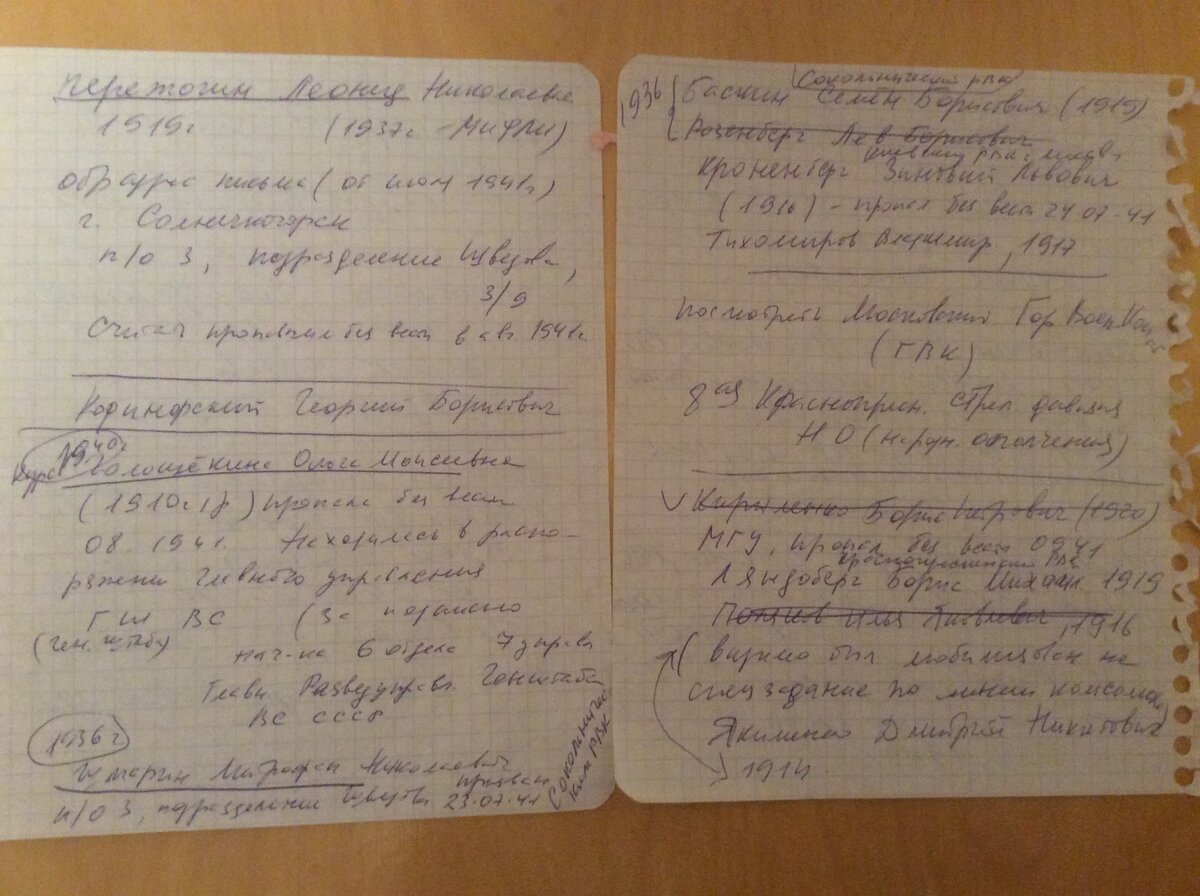 Пережогин Леонид Николаевич
1919г. (1937г - МИФЛИ)
обр адрес письма (от июля 1941г)
г. Солнечногорск
п/о 3, подразделение Цветова,
3/9
Считать пропавшим без вести в авг 1941г.
Кодинфский Георгий Борисович
1940г
Голощёкина Ольга Моисеевна
(1910г.р) пропала без вести
08.1941г. Находилась в распо-
ряжении Главного управления
ГШ ВС (За подписью
(Ген. штаба) нач-ка 6 отдела 7 управ
Главн. Разведуправ. Генштаба
ВС СССР
1936г
Шмарин Митрофан Николаевич
призван
п/о 3, подразделение Цветова 23.07.41
Сокольничес
ким РВК
Сокольнический РВК
1936 Баскин Семён Борисович (1919)
Розенберг Лев Борисович
Кроненберг Зиновий Львович
(1916) - пропал без вести 24 07-41
Тихомиров Владимир, 1917
посмотреть Московский Гор Воен Ком
(ГВК)
8ая Краснопресн. стрел. дивизия
НО (народн. ополчения)
Кирпиенко Борис Петрович (1920)
МГУ, пропал без вести 09 41
Краснопресненский РВК
Ляндоберг Борис Михайл. 1919
Поляков Илья Яковлевич, 1916
(видимо был мобилизован на
спецзадание по линии комсомола)
Якименко Дмитрий Никитович
1914.